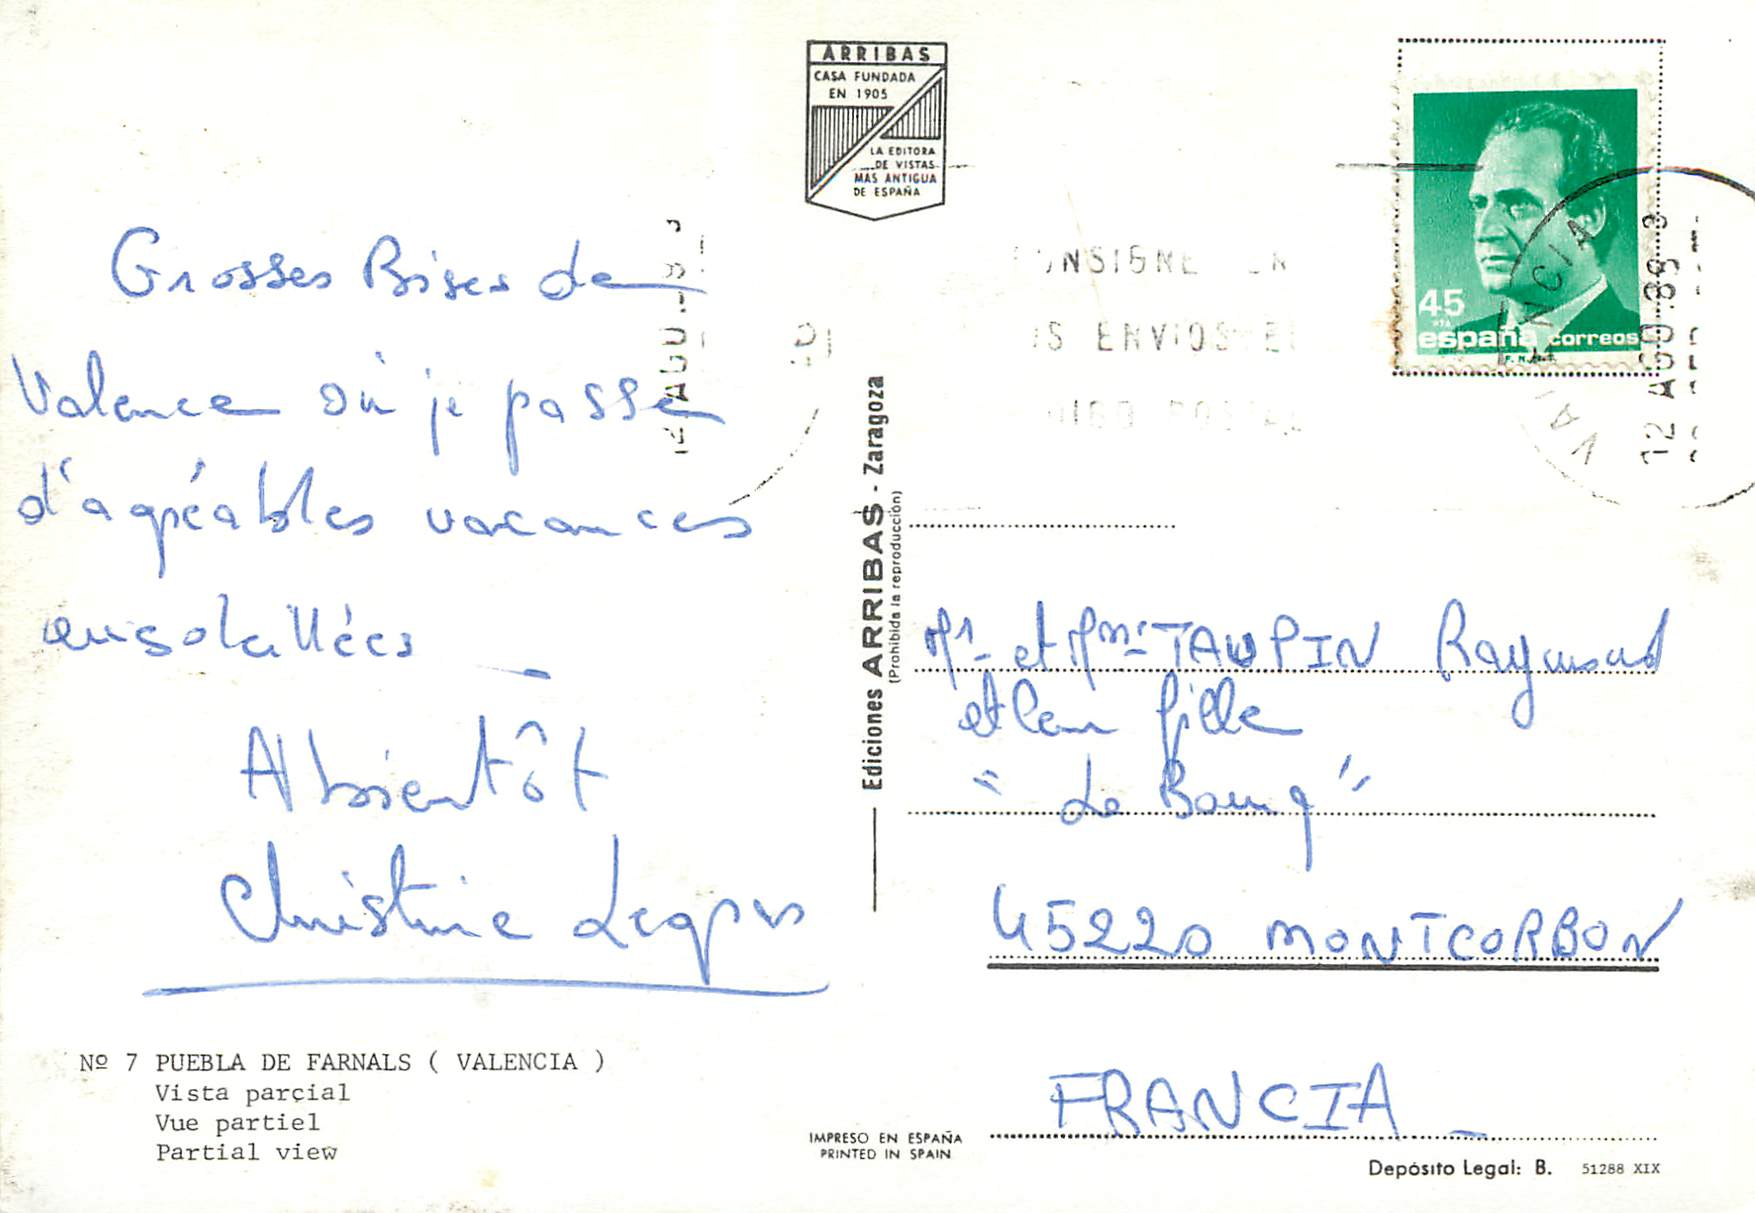 ARRIBAS
CASA FUNDADA
EN 1905
LA EDITORA
DE VISTAS
MAS ANTIGUA
DE ESPAÑA
Grosses Bises de
Valence où je passe
d'agréables vacances
ensoleillées
A bientôt
Christine
Nº 7 PUEBLA DE FARNALS ( VALENCIA )
Vista parcial
Vue partiel
Partial view
Ediciones ARRIBAS - Zaragoza
(Prohibida la reproducción)
IMPRESO EN ESPAÑA
PRINTED IN SPAIN
45
PTA
españa correos
VALENCIA
12 AGO.88
ENVIOS
Mr et Mme TAUPIN Raymond
et leur fille
"Le Bourg"
45220 MONTCORBON
FRANCIA
Depósito Legal: B. 51288 XIX